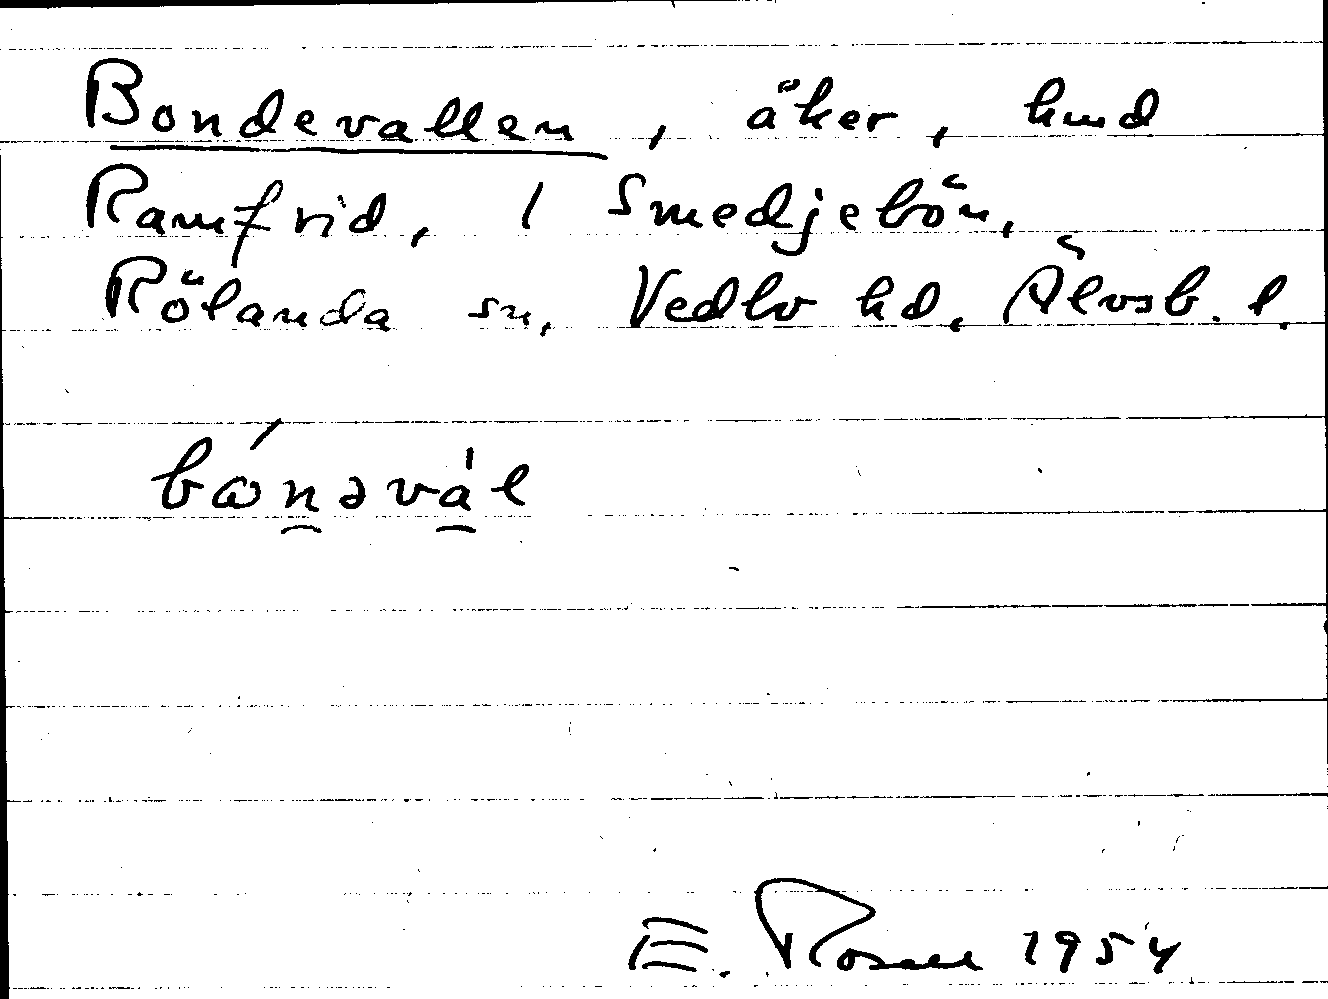 Bondevallen, åker, hmd
Ramfrid, 1 Smedjebön,
Rölanda sn, Vedbo hd. Älvsb. l.
bɷ́nəvàl
E. Rosell 1954